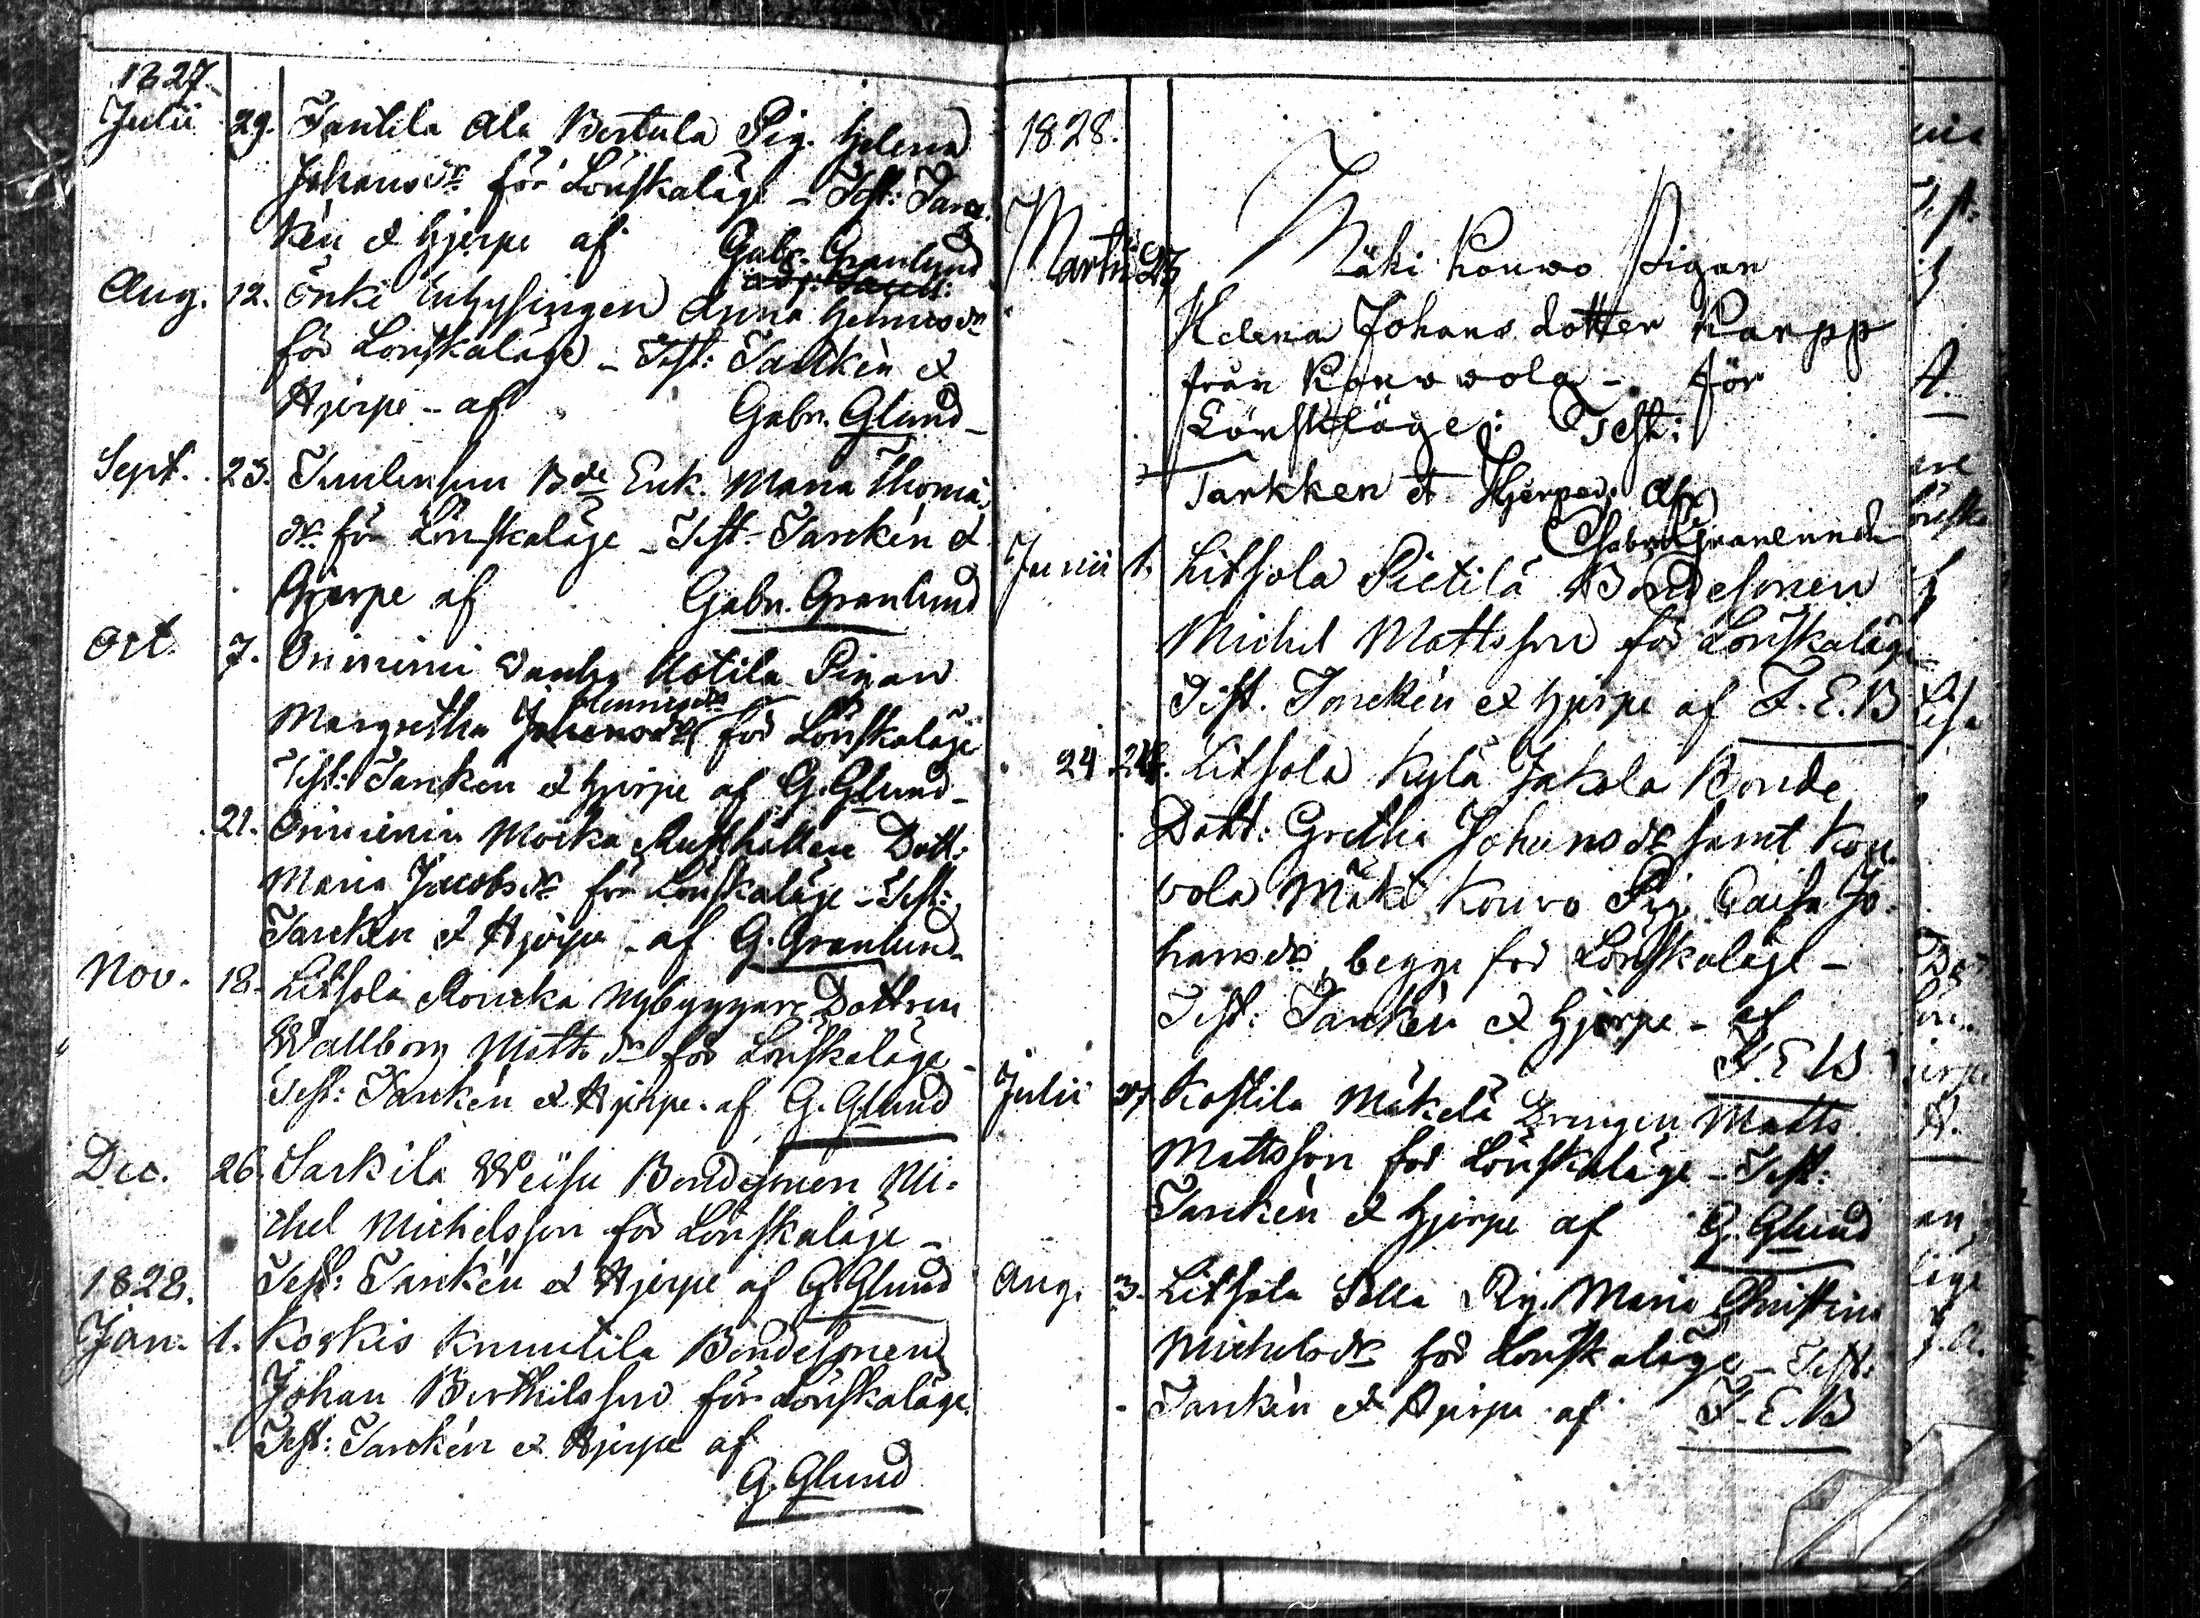 1827.
Julii 29. Tantila Ala Bertula Pig. Helena
Johansdr för Lönskaläge - Test: Tarc-
kén et Hjerpe af Gabr. Granlund
Aug. 12. Önki Enhysingen Anna Henrsdr
för Lönskaläge - Test: Tarckén et
Hjerpe - af Gabr. Glund -
Sept. 23. Bde Enk. Maria Thomæ
dr för Lönskaläge - Test - Tarckén et
Hjerpe af Gabr. Granlund
Oct. 7. Onimini Wanha Motila Pigan
Henricsdr
Margretha Johansdr för Lönskaläge
Test: Tarckén et Hjerpe af G. Glund -
21. Onimini Mörka Rusthållare Dott:
Maria Jacobsdr för Lönskaläge - Test:
Tarckén et Hjerpe - af G. Granlund
Nov. 18. Litsola Nybyggare Dottren
Wallborg Mattsdr för Lönskaläge -
Test: Tarckén et Hjerpe - af G. Glund
Dec. 26. Sarkila Bondesonen Mi-
chel Michelsson för Lönskaläge -
Test: Tarckén et Hjerpe af G. Glund
1828.
Jan. 1. Koskis Knuutila Bondesonen
Johan Berthilsson för Lönskaläge.
Test: Tarckén et Hjerpe af
G. Glund
1828.
Martii 23 Mäki Kouvo Pigan
Helena Johans dotter Karpp
från Kouwola - för
Lönskläge: Test:
Tarkken et Hjerpe: Af
Gabr. Granlund
Junii 1. Litsola Pietilä Bondesonen
Michel Mattsson för Lönskaläge
Test. Tarckén et Hjerpe af F. E. B
24 24. Litsola Kylä Jakola Bonde
Dott: Gretha Johansdr samt Kou-
vola Mäki Kouvo Pig. Caisa Jo-
hansdr, begge för Lönskaläge -
Test: Tarckén et Hjerpe - af
F. E. B.
Julii 27 Kostila Mäkelä Drengen Matts
Mattsson för Lönskaläge - Test:
Tarckén et Hjerpe af G. Glund
Aug. 3. Litsola Pig. Maria Christina
Michelsdr för Lönskaläge - Test:
Tarckén et Hjerpe af F. E. B